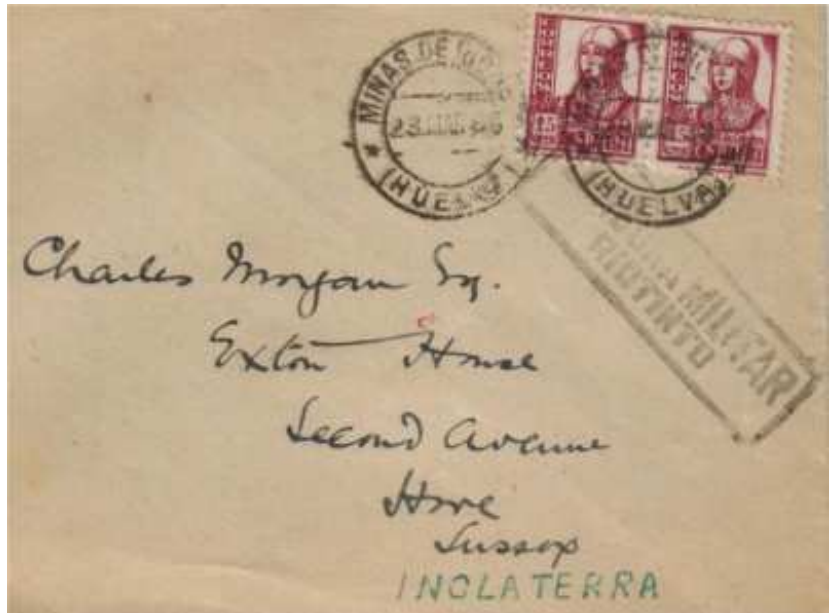 MINAS DE
(HUELVA)
(HUELVA)
CENSURA MILITAR
RIOTINTO
Charles Morgan Esq.
Exton House
Second Avenue
Hove
Sussex
INGLATERRA